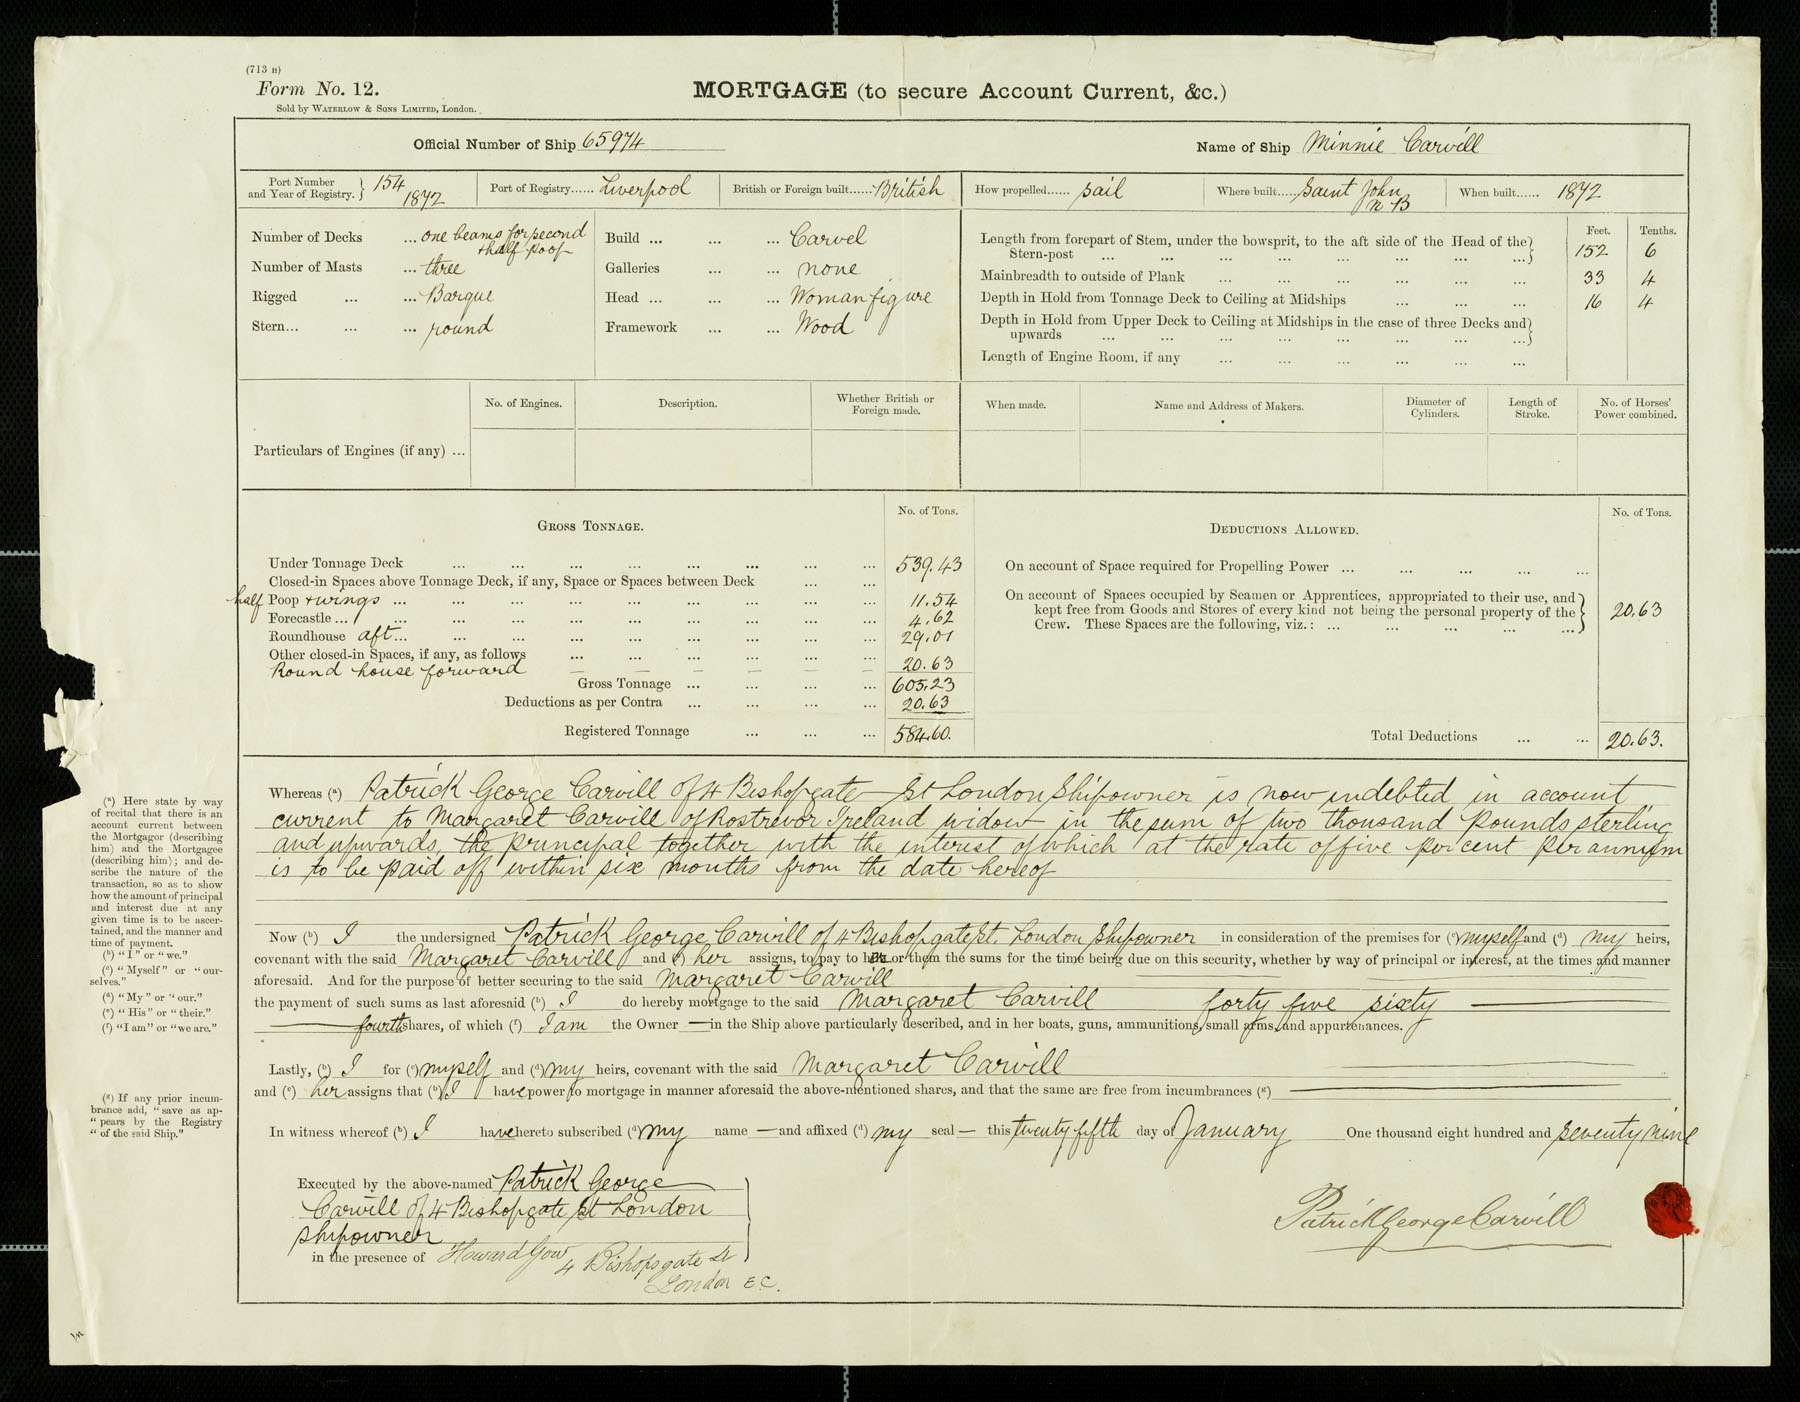 (713 B)
Form No. 12.
Sold by WATERLOW & SONS LIMITED, London.
MORTGAGE (to secure Account Current, &c.)
Official Number of Ship 65974
Name of Ship Minnie Carvill
Port Number and Year of Registry. } 154 1872
Port of Registry...... Liverpool
British or Foreign built...... British
How propelled...... Sail
Where built..... Saint John N B
When built...... 1872
Number of Decks ... one beams for second + half poop
Number of Masts ... three
Rigged ... ... Barque
Stern... ... ... round
Build ... ... ... Carvel
Galleries ... ... none
Head ... ... ... Woman figure
Framework ... ... Wood
Feet. Tenths.
Length from forepart of Stem, under the bowsprit, to the aft side of the Head of the
Stern-post ... ... ... ... ... ... ... ...} 152 6
Mainbreadth to outside of Plank ... ... ... ... ... ... 33 4
Depth in Hold from Tonnage Deck to Ceiling at Midships ... ... ... 16 4
Depth in Hold from Upper Deck to Ceiling at Midships in the case of three Decks and
upwards ... ... ... ... ... ... ... ...}
Length of Engine Room, if any ... ... ... ... ... ...
Particulars of Engines (if any) ...
No. of Engines.
Description.
Whether British or
Foreign made.
When made.
Name and Address of Makers.
Diameter of
Cylinders.
Length of
Stroke.
No. of Horses'
Power combined.
GROSS TONNAGE.
No. of Tons.
Under Tonnage Deck ... ... ... ... ... ... ... ... 539.43
Closed-in Spaces above Tonnage Deck, if any, Space or Spaces between Deck ... ...
half Poop + wings ... ... ... ... ... ... ... ... ... 11.54
Forecastle ... ... ... ... ... ... ... ... ... 4.62
Roundhouse aft ... ... ... ... ... ... ... ... ... 29.01
Other closed-in Spaces, if any, as follows ... ... ... ... ... ... 20.63
Round house forward
Gross Tonnage ... ... ... ... 605.23
Deductions as per Contra ... ... ... ... 20.63
Registered Tonnage ... ... ... 584.60.
DEDUCTIONS ALLOWED.
No. of Tons.
On account of Space required for Propelling Power ... ... ... ... ...
On account of Spaces occupied by Seamen or Apprentices, appropriated to their use, and
kept free from Goods and Stores of every kind not being the personal property of the
Crew. These Spaces are the following, viz.: ... ... ... ... ...} 20.63
Total Deductions ... ... 20.63.
Whereas (a) Patrick George Carvill of 4 Bishopgate St London Shipowner is now indebted in account
current to Margaret Carvill of Rostrevor Ireland widow in the sum of two thousand Pounds sterling
and upwards, the principal together with the interest of which at the rate of five per cent per annum
is to be paid off within six months from the date hereof
Now (b) I the undersigned Patrick George Carvill of 4 Bishopgate St. London Shipowner in consideration of the premises for (c) myself and (d) my heirs,
covenant with the said Margaret Carvill and (e) her assigns, to pay to her or them the sums for the time being due on this security, whether by way of principal or interest, at the times and manner
aforesaid. And for the purpose of better securing to the said Margaret Carvill
the payment of such sums as last aforesaid (b) I do hereby mortgage to the said Margaret Carvill forty five sixty
fourth shares, of which (f) I am the Owner — in the Ship above particularly described, and in her boats, guns, ammunition, small arms, and appurtenances.
Lastly, (b) I for (c) myself and (d) my heirs, covenant with the said Margaret Carvill
and (e) her assigns that (b) I have power to mortgage in manner aforesaid the above-mentioned shares, and that the same are free from incumbrances (g)
In witness whereof (b) I have hereto subscribed (d) my name — and affixed (d) my seal — this twenty fifth day of January One thousand eight hundred and seventy nine
Executed by the above-named Patrick George
Carvill of 4 Bishopgate St London
Shipowner
in the presence of Howard Gow
4 Bishopsgate St
London E C.
Patrick George Carvill
(a) Here state by way
of recital that there is an
account current between
the Mortgagor (describing
him) and the Mortgagee
(describing him); and de-
scribe the nature of the
transaction, so as to show
how the amount of principal
and interest due at any
given time is to be ascer-
tained, and the manner and
time of payment.
(b) "I" or "we."
(c) "Myself" or "our-
selves."
(d) "My" or "our."
(e) "His" or "their."
(f) "I am" or "we are."
(g) If any prior incum-
brance add, "save as ap-
"pears by the Registry
"of the said Ship."